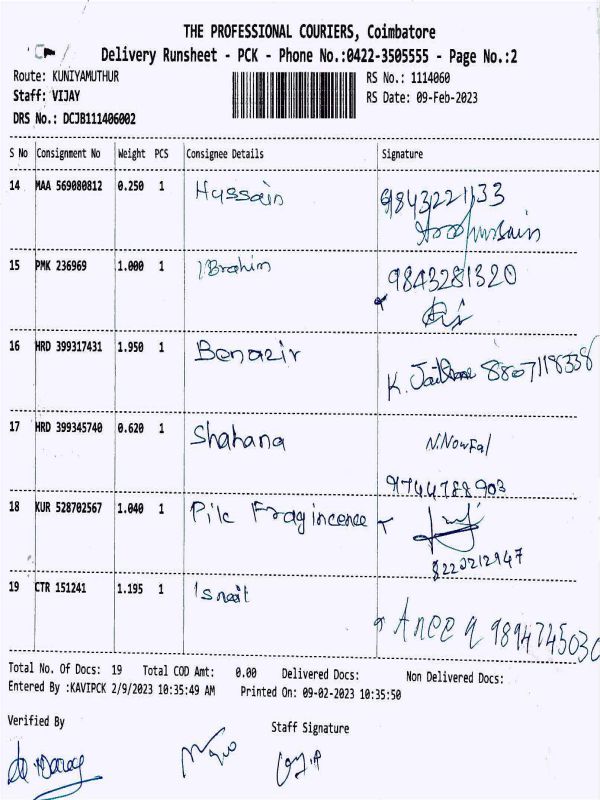 THE PROFESSIONAL COURIERS, Coimbatore
Delivery Runsheet - PCK - Phone No.:0422-3505555 - Page No.:2
Route: KUNIYAMUTHUR RS No.: 1114060
Staff: VIJAY RS Date: 09-Feb-2023
DRS No.: DCJB111406002
S No Consignment No Weight PCS Consignee Details Signature
14 MAA 569080812 0.250 1 Hussain 9843221133
15 PMK 236969 1.000 1 I.Brahim 9843281320
16 HRD 399317431 1.950 1 Benazir K. 8807118338
17 HRD 399345740 0.620 1 Shahana N.Nowfal
9744788903
18 KUR 528702567 1.040 1 Pilc Fragincence
8220212947
19 CTR 151241 1.195 1 9894745030
Total No. Of Docs: 19 Total COD Amt: 0.00 Delivered Docs: Non Delivered Docs:
Entered By :KAVIPCK 2/9/2023 10:35:49 AM Printed On: 09-02-2023 10:35:50
Verified By Staff Signature